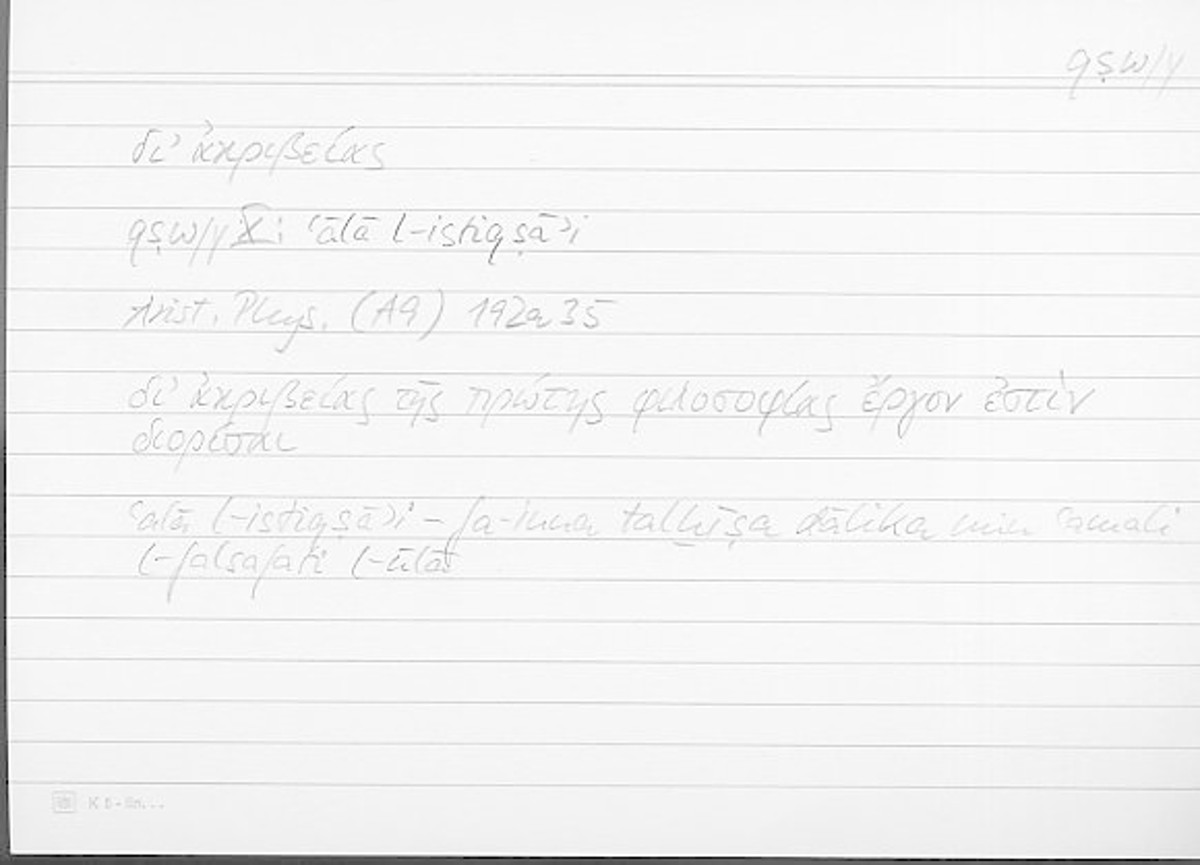 qṣw/y
δι’ ἀκριβείας
qṣw/y X: ‘alā l-istiqṣā’i
Arist. Phys. (A9) 192a35
δι’ ἀκριβείας τῆς πρώτης φιλοσοφίας ἔργον ἐστὶν
διορίσαι
‘alā l-istiqṣā’i – fa-inna talḫīṣa ḏālika min ‘amali
l-falsafati l-ūlā